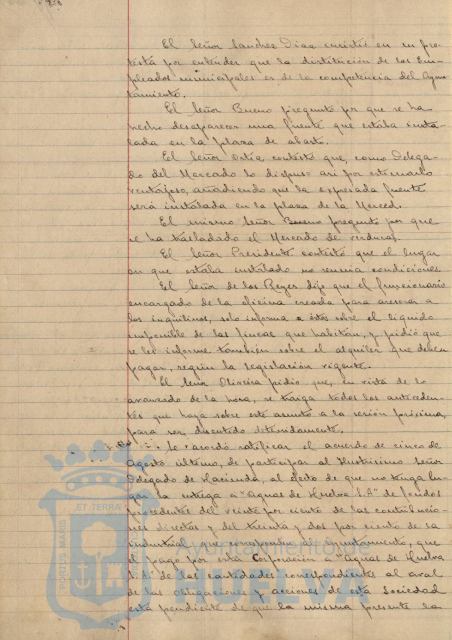 El Señor Sanchez Diaz insistió en su pro-
testa por entender que la destitución de los Em-
pleados municipales es de la competencia del Ayun-
tamiento.
El Señor Bueno preguntó por que se ha
hecho desaparecer una fuente que estaba insta-
lada en la plaza de abasto.
El Señor Ortiz, contestó que, como Delega-
do del Mercado lo dispuso asi por estimarlo
ventajoso, añadiendo que la expresada fuente
será instalada en la plaza de la Merced.
El mismo Señor Bueno preguntó por que
se ha trasladado el Mercado de verduras.
El Señor Presidente contestó que el lugar
en que estaba instalado no reunia condiciones
El Señor de los Reyes dijo que el funcionario
encargado de la oficina creada para asesorar a
los inquilinos, solo informa a éstos sobre el liquido
imponible de las fincas que habitan, y pidió que
se les informe tambien sobre el alquiler que deben
pagar, según la legislación vigente.
El Señor Oliveira pidió que, en vista de lo
avanzado de la hora, se traiga todos los anteceden-
tes que haya sobre este asunto a la sesión próxima,
para ser discutido detenidamente.
Se acordó ratificar el acuerdo de cinco de
Agosto último, de participar al Ilustrisimo Señor
Delegado de Hacienda, al efecto de que no tenga lu-
gar la entrega a "Aguas de Huelva S.A." de fondos
procedentes del veinte por ciento de las contribucio-
nes directas y del treinta y dos por ciento de la
industrial que corresponden al Ayuntamiento, que
el pago por esta Corporación a "Aguas de Huelva
S.A." de las cantidades correspondientes al aval
de las obligaciones y acciones de esta Sociedad
está pendiente de que la misma presente la
ET TERRA
PORTUS MARIS
Ayuntamiento de
HUELVA